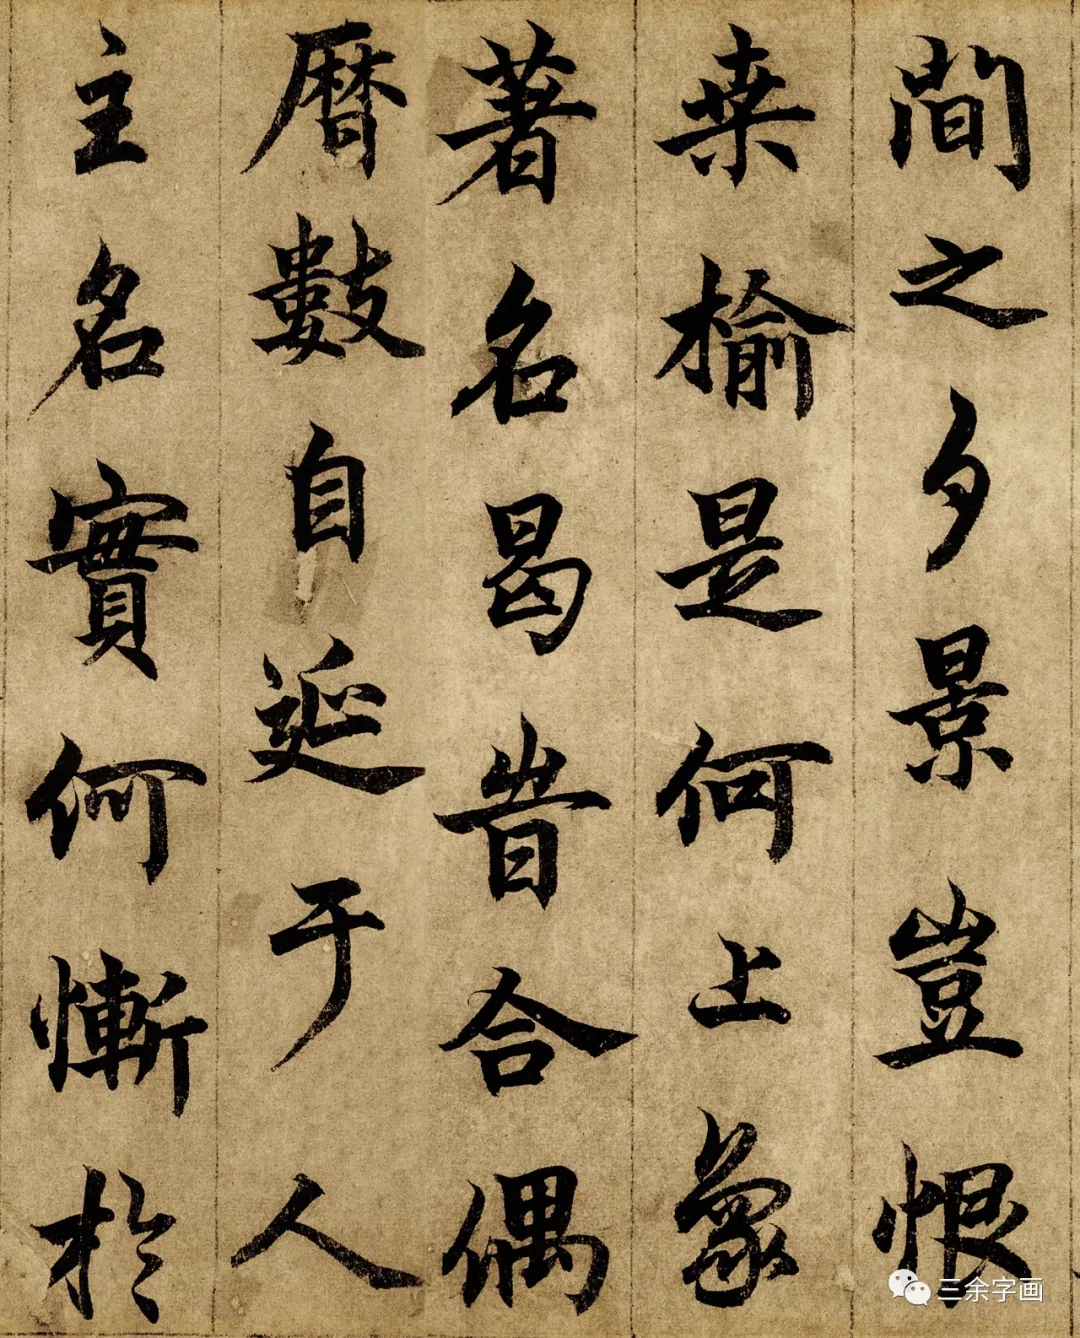 間之夕景豈恨
桒榆是何上象
著名曷昔合偶
曆數自延于人
主名實何慚於
三余字画